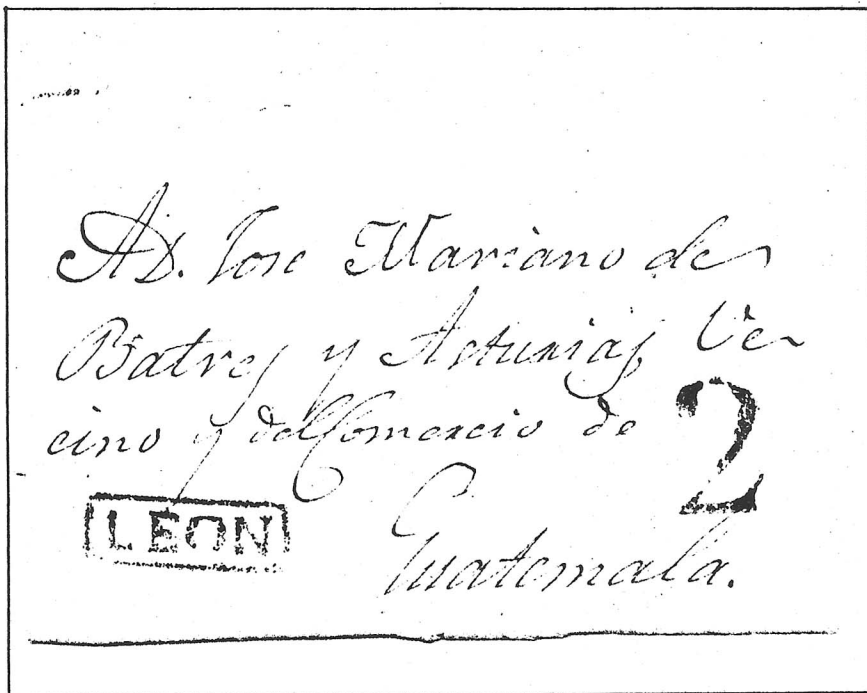 A D. Jose Mariano de
Batres y Asturias Ve-
cino y del Comercio de 2
LEON
Guatemala.